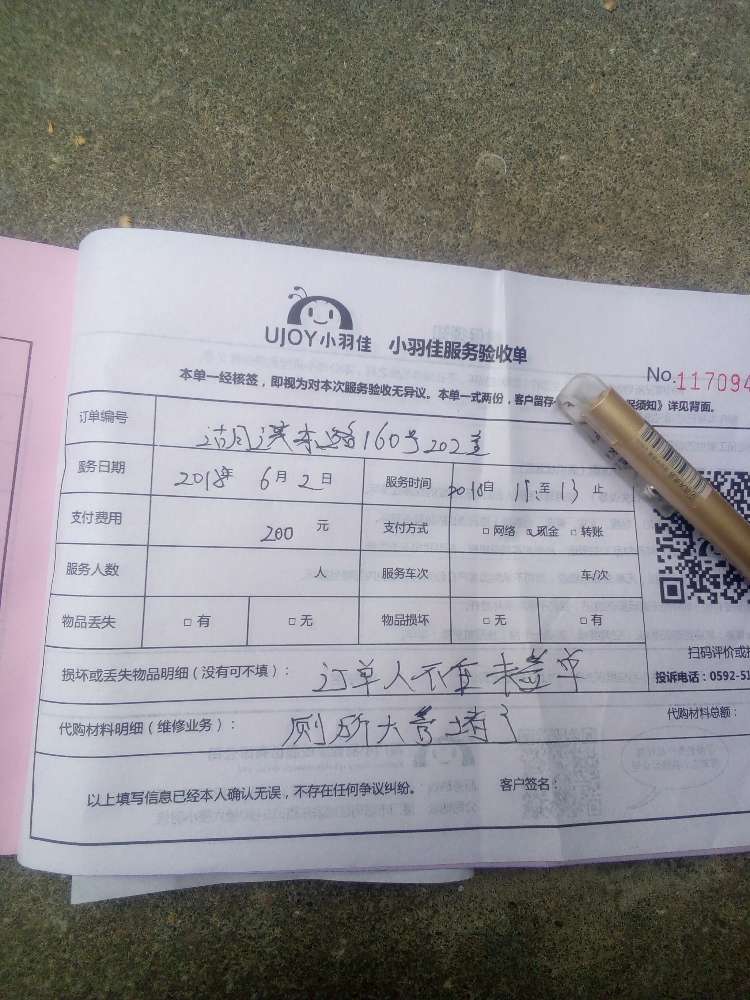 UJOY小羽佳 小羽佳服务验收单
No.117094
本单一经核签，即视为对本次服务验收无异议。本单一式两份，客户留存 保须知》详见背面。
订单编号 路160号202室
服务日期 2018年 6月2日 服务时间 11: 至 13 止
支付费用 200 元 支付方式 □网络 □现金 □转账
服务人数 人 服务车次 车/次
物品丢失 □有 □无 物品损坏 □无 □有
扫码评价或
损坏或丢失物品明细（没有可不填）： 订单人不在未签单
投诉电话：0592-51
代购材料明细（维修业务）： 厕所大管堵了
代购材料总额：
以上填写信息已经本人确认无误，不存在任何争议纠纷。 客户签名：